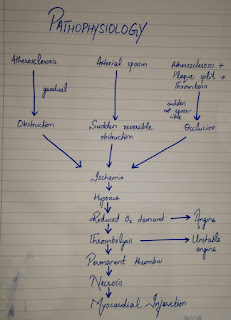 PATHOPHYSIOLOGY
Atherosclerosis
Arterial spasm
Atherosclerosis +
Plaque split +
Thrombosis
gradual
sudden
Obstruction
Sudden reversible
obstruction
Occlusion
Ischemia
Hypoxia
Reduced O2 demand → Angina
Thrombolysis → Unstable
angina
Permanent thrombu
Necrosis
Myocardial Infarction